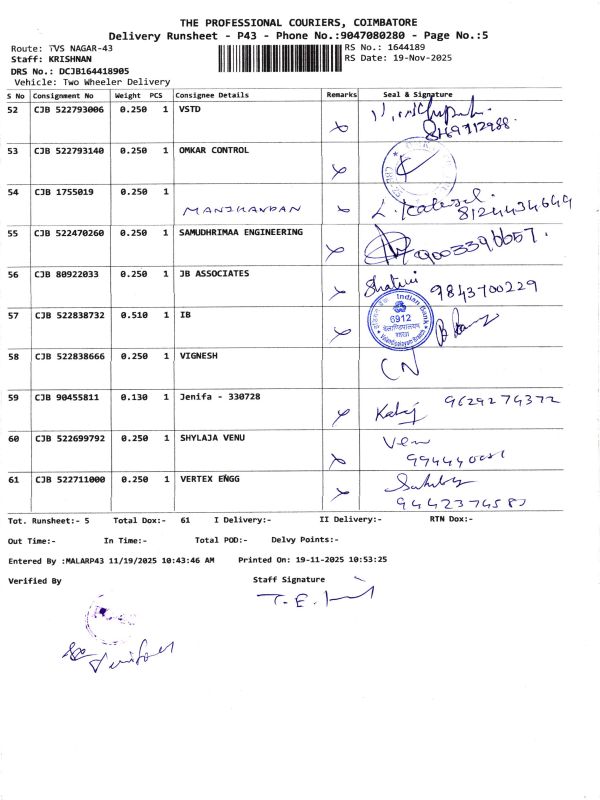 THE PROFESSIONAL COURIERS, COIMBATORE
Delivery Runsheet - P43 - Phone No.:9047080280 - Page No.:5
Route: TVS NAGAR-43 RS No.: 1644189
Staff: KRISHNAN RS Date: 19-Nov-2025
DRS No.: DCJB164418905
Vehicle: Two Wheeler Delivery
S No Consignment No Weight PCS Consignee Details Remarks Seal & Signature
52 CJB 522793006 0.250 1 VSTD
53 CJB 522793140 0.250 1 OMKAR CONTROL
54 CJB 1755019 0.250 1
MANIKANDAN 8124434649
55 CJB 522470260 0.250 1 SAMUDHRIMAA ENGINEERING
9003396657.
56 CJB 80922033 0.250 1 JB ASSOCIATES
9843700229
57 CJB 522838732 0.510 1 IB Indian Bank
6912
58 CJB 522838666 0.250 1 VIGNESH
59 CJB 90455811 0.130 1 Jenifa - 330728 9629274372
60 CJB 522699792 0.250 1 SHYLAJA VENU
61 CJB 522711000 0.250 1 VERTEX ENGG
Tot. Runsheet:- 5 Total Dox:- 61 I Delivery:- II Delivery:- RTN Dox:-
Out Time:- In Time:- Total POD:- Delvy Points:-
Entered By :MALARP43 11/19/2025 10:43:46 AM Printed On: 19-11-2025 10:53:25
Verified By Staff Signature